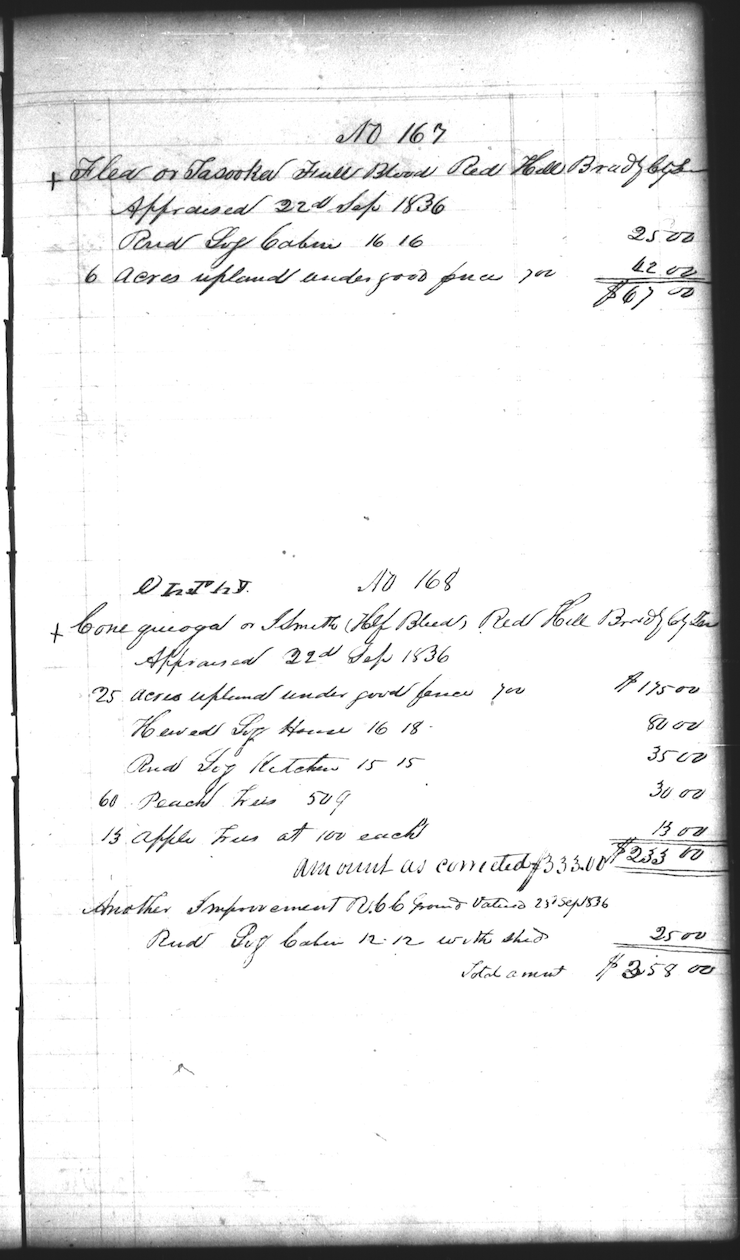 No 167
+ Flea or Tasooka Full Blood Red Hill Brady Cty
Appraised 22d Sep 1836
Rnd Log Cabin 16 16 25 00
6 Acres upland under good fence 700 42 00
$67 00
No 168
+ Conequoga or J Smith (Hlf Blood) Red Hill Brady Cty Ten
Appraised 22d Sep 1836
25 acres upland under good fence 700 $175 00
Hewed Log House 16 18 80 00
Rnd Log Kitchen 15 15 35 00
60 Peach Trees 50 30 00
13 Apple Trees at 100 each 13 00
amount as corrected $333.00 $233 00
Another Improvement Ground Valued 23d Sep 1836
Rnd Log Cabin 12 12 with shed 25 00
Total amnt $358 00